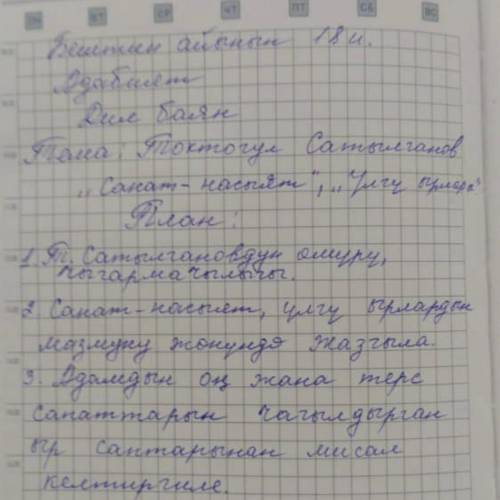 ПН ВТ СР ЧТ ПТ СБ ВС
Бештин айынын 18и.
Адабият
Дил баян
Тема: Токтогул Сатылганов
„Санат-насыят", „Үлгү ырлары"
План:
1. Т. Сатылгановдун өмүрү,
чыгармачылыгы.
2. Санат-насыят, үлгү ырлардын
мазмуну жөнүндө жазгыла.
3. Адамдын оң жана терс
сапаттарын чагылдырган
ыр саптарынан мисал
келтиргиле.